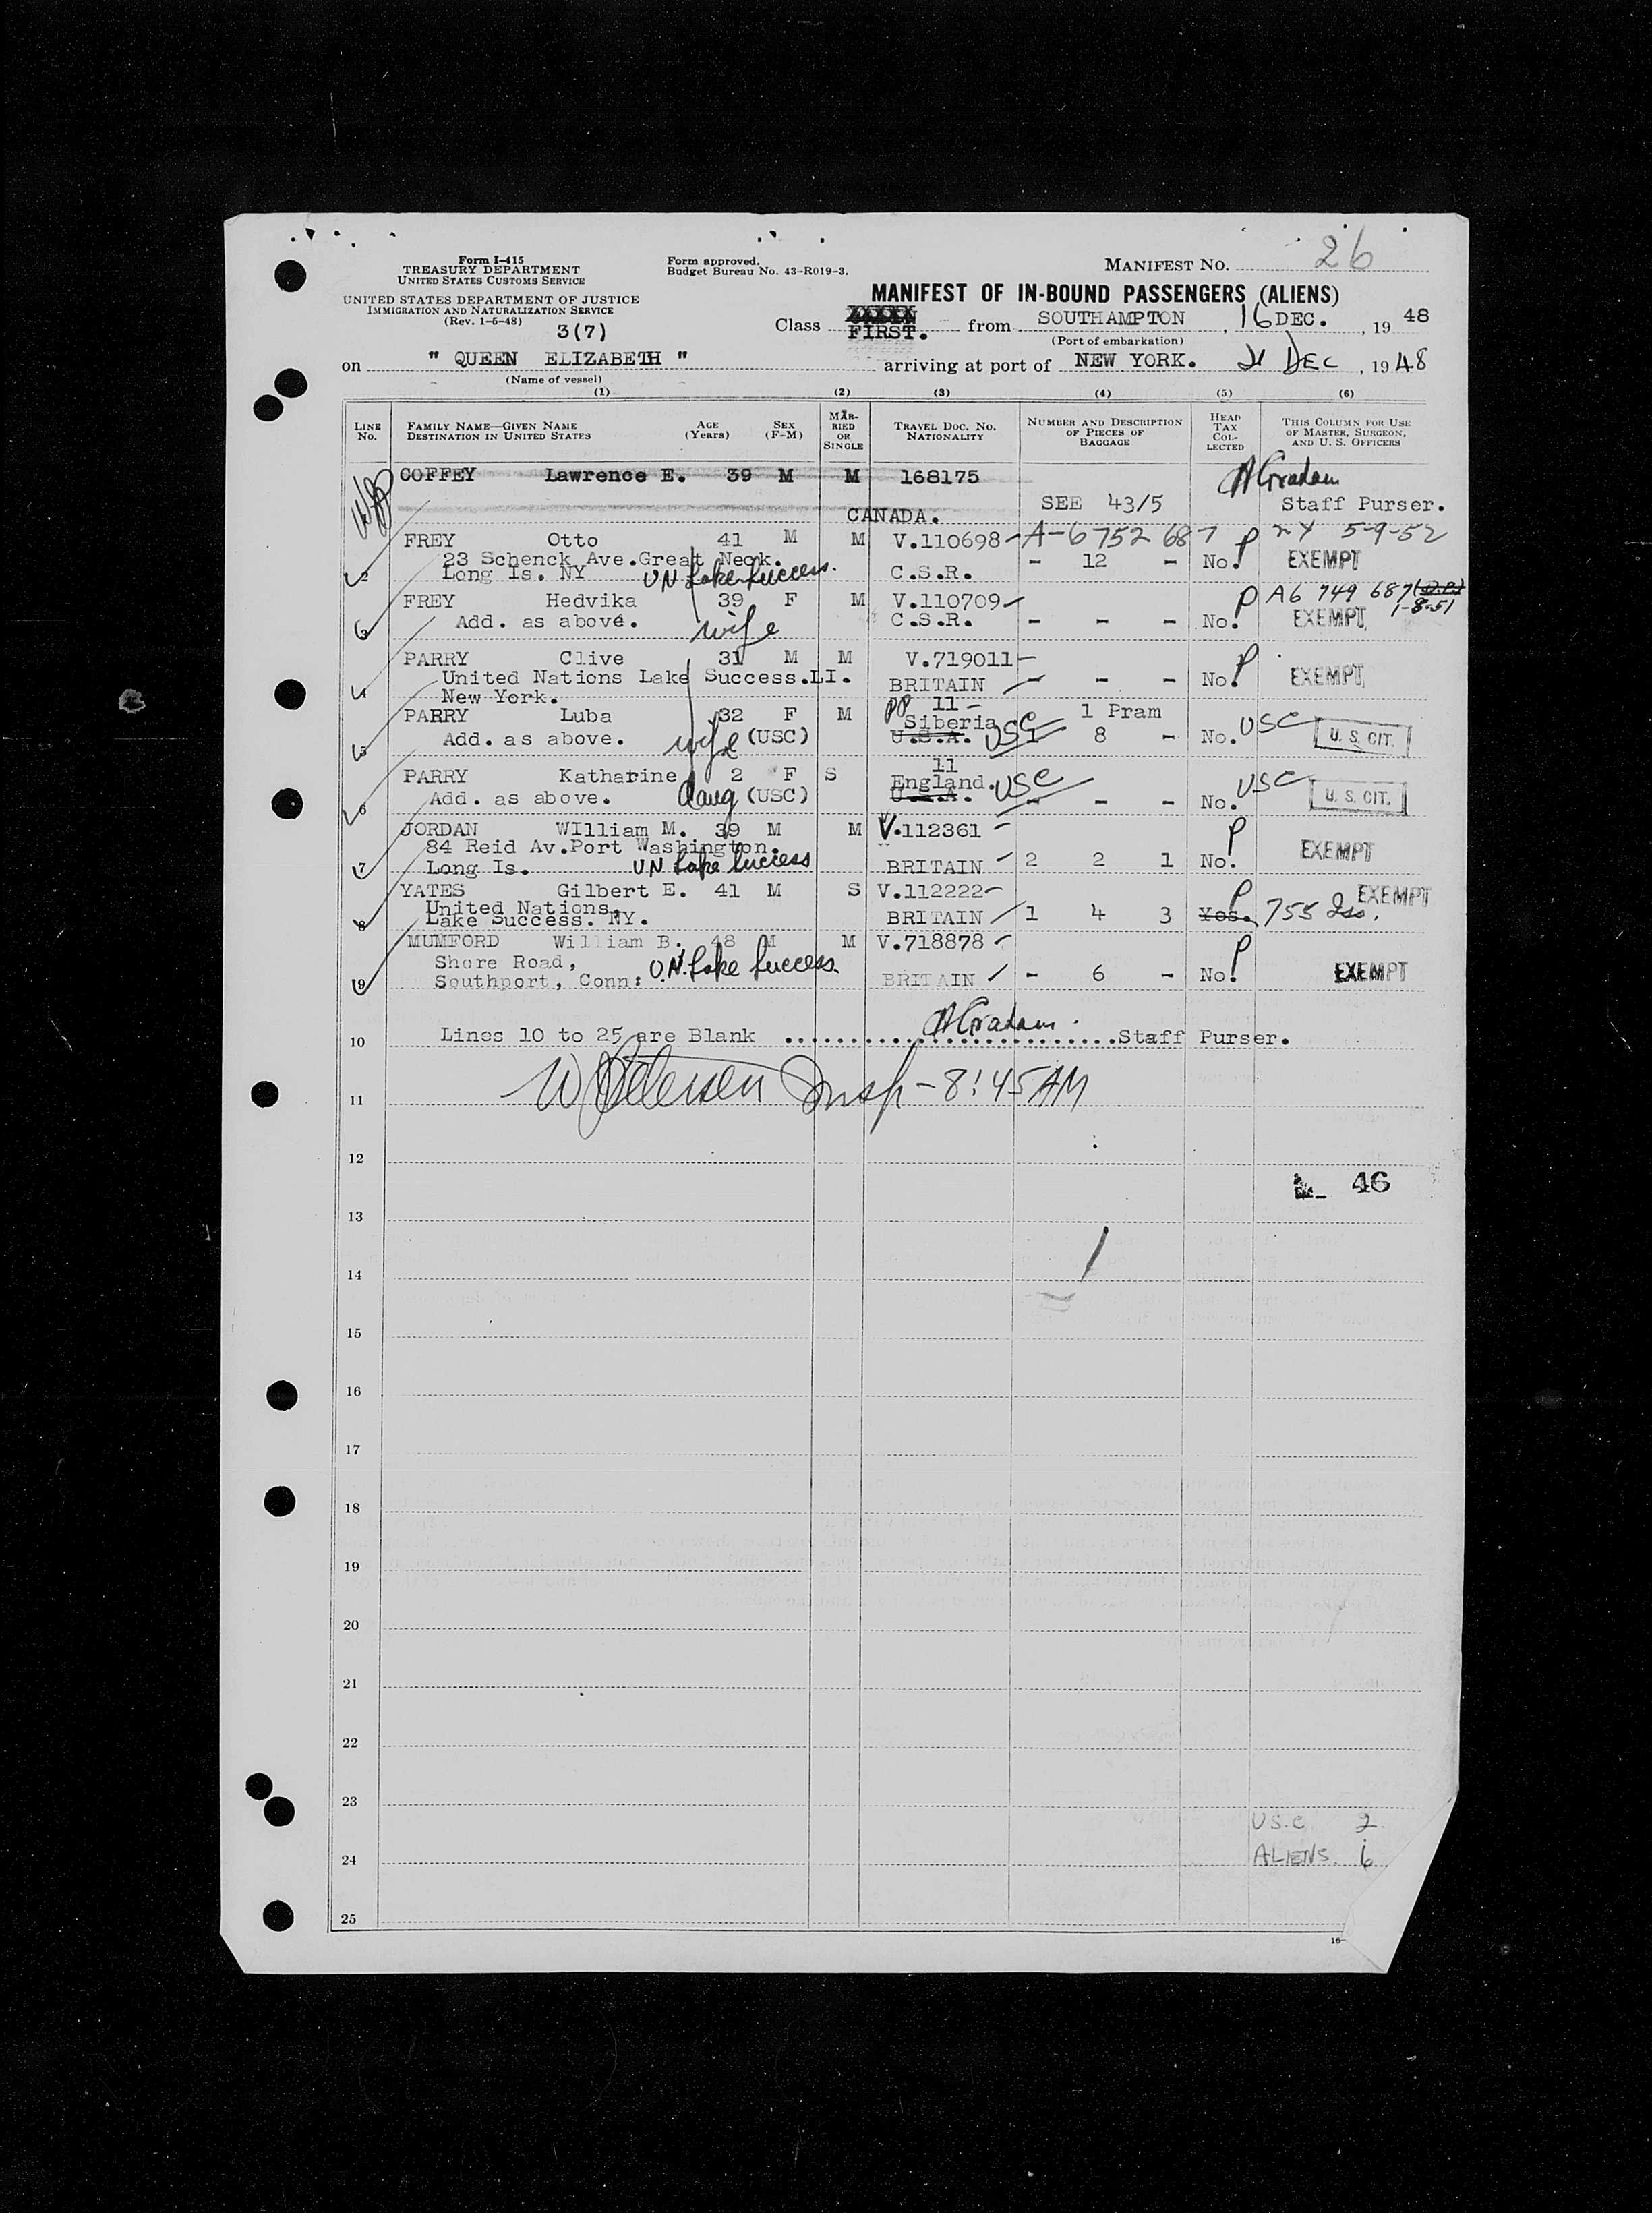 Form I-415
TREASURY DEPARTMENT
UNITED STATES CUSTOMS SERVICE
UNITED STATES DEPARTMENT OF JUSTICE
IMMIGRATION AND NATURALIZATION SERVICE
(Rev. 1-5-48)
3(7)
Form approved.
Budget Bureau No. 43-R019-3.
MANIFEST NO. 26
MANIFEST OF IN-BOUND PASSENGERS (ALIENS)
Class FIRST. from SOUTHAMPTON, 16 DEC., 19 48
(Port of embarkation)
on " QUEEN ELIZABETH " arriving at port of NEW YORK. 21 DEC, 1948
(Name of vessel)
(1) (2) (3) (4) (5) (6)
LINE No. FAMILY NAME—GIVEN NAME DESTINATION IN UNITED STATES AGE (Years) SEX (F-M) MARRIED OR SINGLE TRAVEL DOC. NO. NATIONALITY NUMBER AND DESCRIPTION OF PIECES OF BAGGAGE HEAD TAX COLLECTED THIS COLUMN FOR USE OF MASTER, SURGEON, AND U. S. OFFICERS
COFFEY Lawrence E. 39 M M 168175
SEE 43/5 Staff Purser.
CANADA.
FREY Otto 41 M M V.110698 A-6 752 687 P NY 5-9-52
23 Schenck Ave.Great Neck.
2 Long Is. NY UN Lake Success. C.S.R. - 12 - No. EXEMPT
FREY Hedvika 39 F M V.110709 P A6 749 687 1-8-51
3 Add. as above. wife C.S.R. - - - No. EXEMPT
PARRY Clive 31 M M V.719011 P
United Nations Lake Success.LI.
4 New York. BRITAIN - - - No. EXEMPT
PARRY Luba 32 F M PP 11 Siberia 1 Pram
5 Add. as above. wife (USC) U.S.A. USC 1 8 - No. USC U. S. CIT.
PARRY Katharine 2 F S 11 England.
6 Add. as above. Daug (USC) U.S.A. USC - - - No. USC U. S. CIT.
JORDAN WIlliam M. 39 M M V.112361 P
84 Reid Av.Port Washington.
7 Long Is. UN Lake Success BRITAIN 2 2 1 No. EXEMPT
YATES Gilbert E. 41 M S V.112222 P EXEMPT
United Nations,
8 Lake Success. NY. BRITAIN 1 4 3 Yes. 755 Iss.
MUMFORD William B. 48 M M V.718878 P
Shore Road,
9 Southport, Conn: U.N. Lake Success. BRITAIN - 6 - No. EXEMPT
10 Lines 10 to 25 are Blank ..............................Staff Purser.
11 Insp - 8:45 AM
12
46
13
14
15
16
17
18
19
20
21
22
23
U.S.C 2
24 ALIENS. 6
25
16-